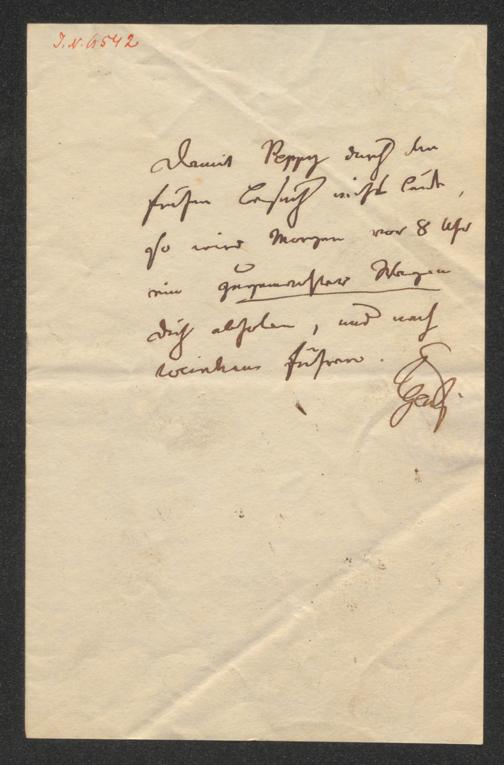 J.N. 6542
Damit Peppy durch den
frühen Besuch nicht leide,
so wird Morgen vor 8 Uhr
ein Wagen
dich abholen, und nach
Weinhaus führen.